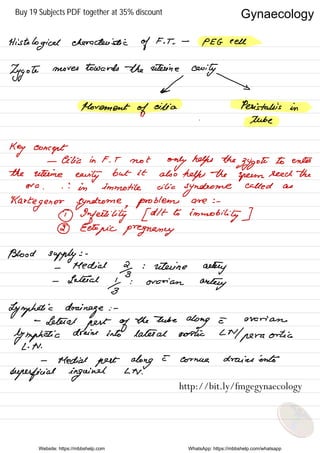 Buy 19 Subjects PDF together at 35% discount
Gynaecology
Histological characteristic of F.T. — PEG cell
Zygote moves towards the uterine cavity
Movement of cilia
Peristalsis in tube
Key concept
— Cilia in F.T not only helps the zygote to enter
the uterine cavity but it also helps the sperm reach the
ova. ∴ in Immotile cilia syndrome called as
Kartegenor syndrome, problems are :-
① Infertility [d/t to immobility]
② Ectopic pregnancy
Blood supply :-
— Medial 2/3 : uterine artery
— Lateral 1/3 : ovarian artery
Lymphatic drainage :-
— Lateral part of the tube along c̄ ovarian
lymphatic drains into lateral aortic LN/para aortic
L.N.
— Medial part along c̄ cornua drains into
superficial inguinal L.N.
http://bit.ly/fmgegynaecology
Website: https://mbbshelp.com
WhatsApp: https://mbbshelp.com/whatsapp